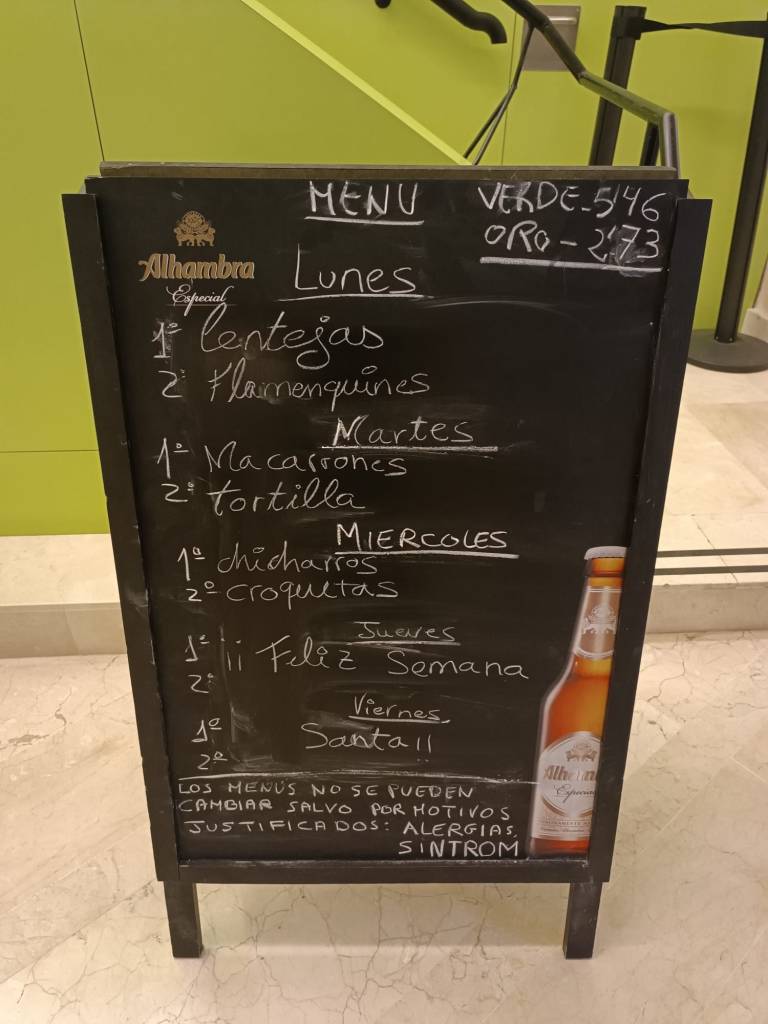 MENU
VERDE-5'46
ORO-2'73
Alhambra
Especial
Lunes
1º lentejas
2º Flamenquines
Martes
1º Macarrones
2º tortilla
MIERCOLES
1º chicharros
2º croquetas
Jueves
1º ¡¡ Feliz Semana
2º
Viernes
1º Santa!!
2º
LOS MENÚS NO SE PUEDEN
CAMBIAR SALVO POR MOTIVOS
JUSTIFICADOS: ALERGIAS,
SINTROM
Especial